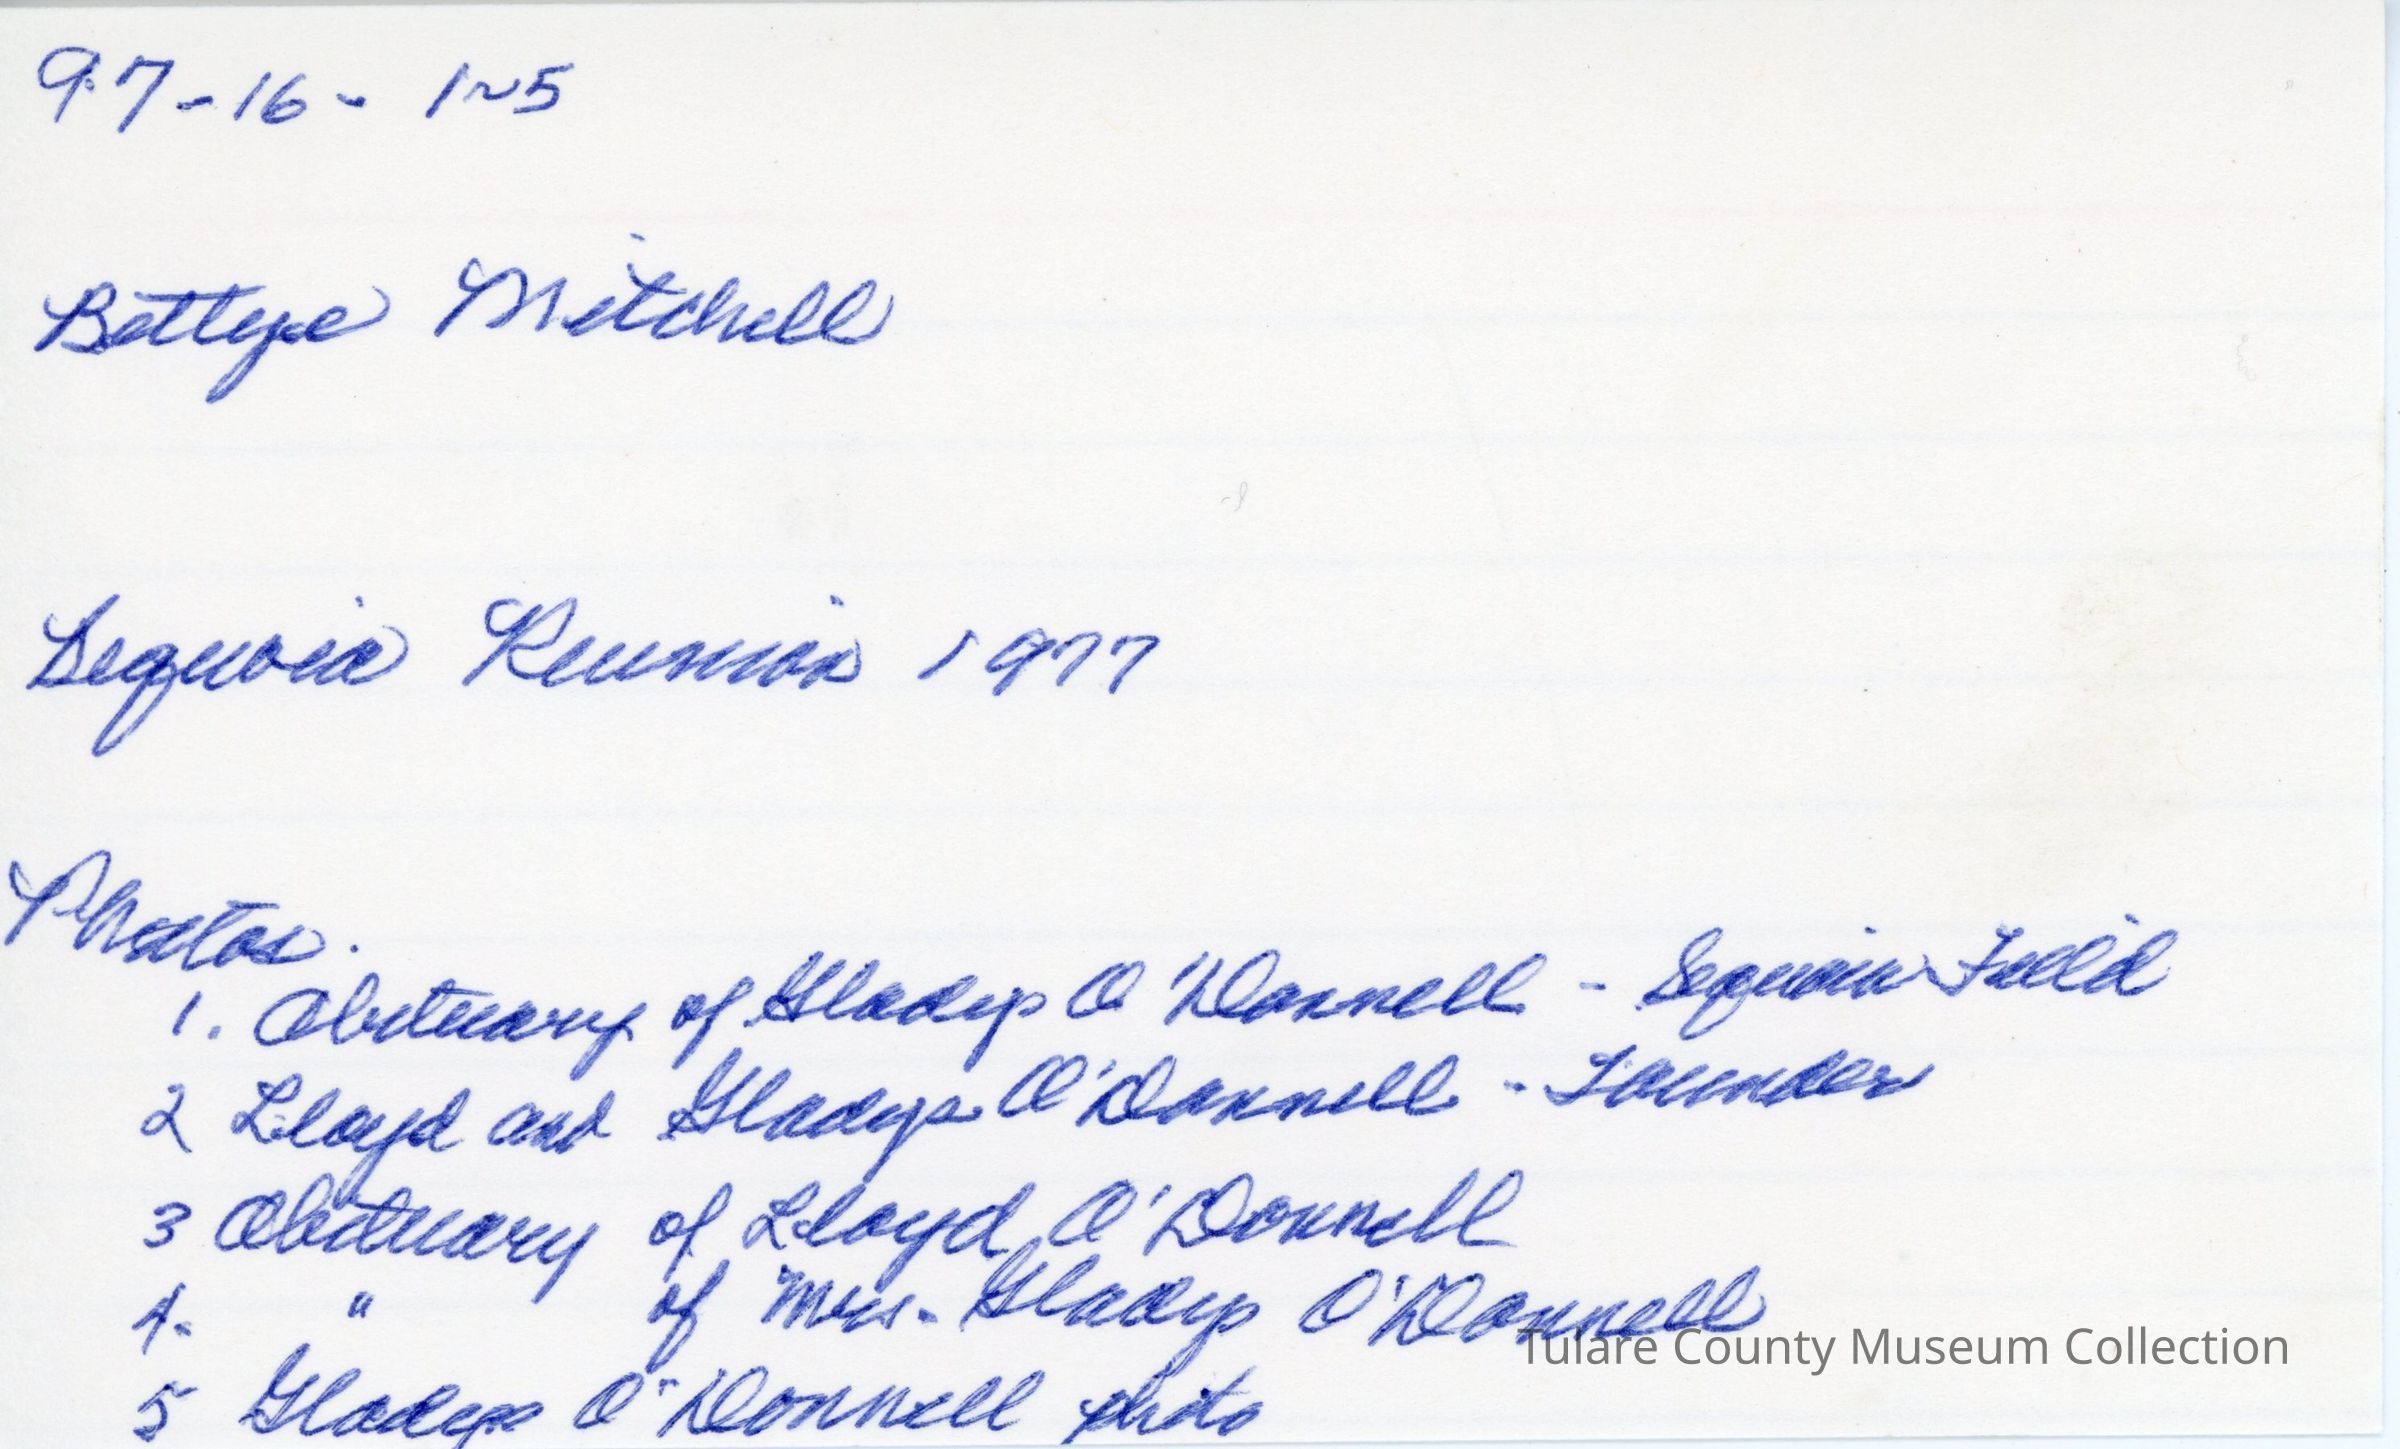 97-16-1~5
Bettye Mitchell
Sequoia Reunion 1977
Photos.
1. Obituary of Gladys O'Donnell - Sequoia Field
2 Lloyd and Gladys O'Donnell - Founder
3 Obituary of Lloyd O'Donnell
4. " of Mrs. Gladys O'Donnell
Tulare County Museum Collection
5 Gladys O'Donnell photo